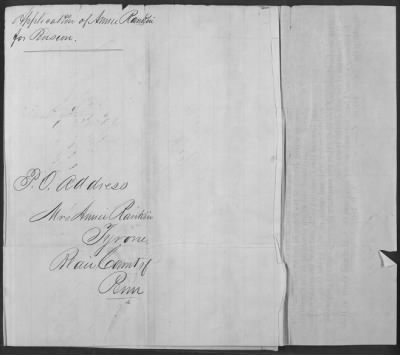 Application of Annie Rankin
for Pension.
P.O. Address
Mrs Annie Rankin
Tyrone
Blair County
Penn